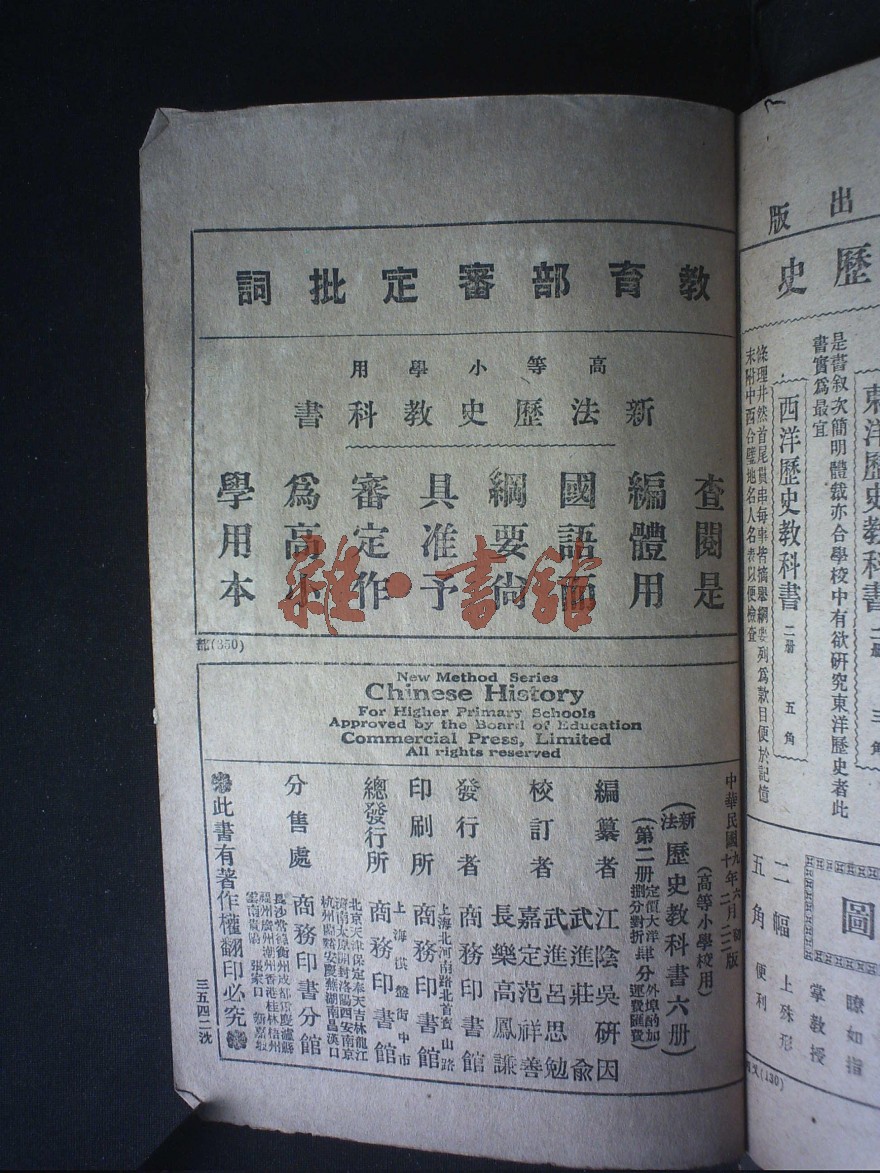 教育部審定批詞
高等小學用
新法歷史教科書
查閱是
編體用
國語而
綱要尚
具准予
審定作
為高小
學用本
(350)
雜·書館
New Method Series
Chinese History
For Higher Primary Schools
Approved by the Board of Education
Commercial Press, Limited
All rights reserved
(高等小學校用)
(新法)歷史教科書六册
(第二册定價大洋肆分外埠酌加
捌分對折運費匯費)
編纂者
江陰吳研因
武進莊俞
武進呂思勉
校訂者
嘉定范祥善
長樂高鳳謙
發行者
商務印書館
上海北河南路北首寶山路
印刷所
商務印書館
上海棋盤街中市
總發行所
商務印書館
北京天津保定奉天吉林龍江
濟南太原開封洛陽西安南京
分售處
商務印書分館
此書有著作權翻印必究
三五四二沈
出版
歷史
東洋歷史教科書
二册 三角
是書敘次簡明體裁亦合學校中有欲研究東洋歷史者此
書實為最宜
西洋歷史教科書
二册 五角
條理井然首尾貫串每事皆摘舉綱要列為款目便於記憶
末附中西合璧地名人名表以便檢查
圖
二幅
五角
瞭如指
掌教授
上殊形
便利
(130)